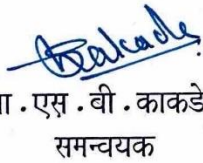 ा . एस . बी . काकडे
समन्वयक